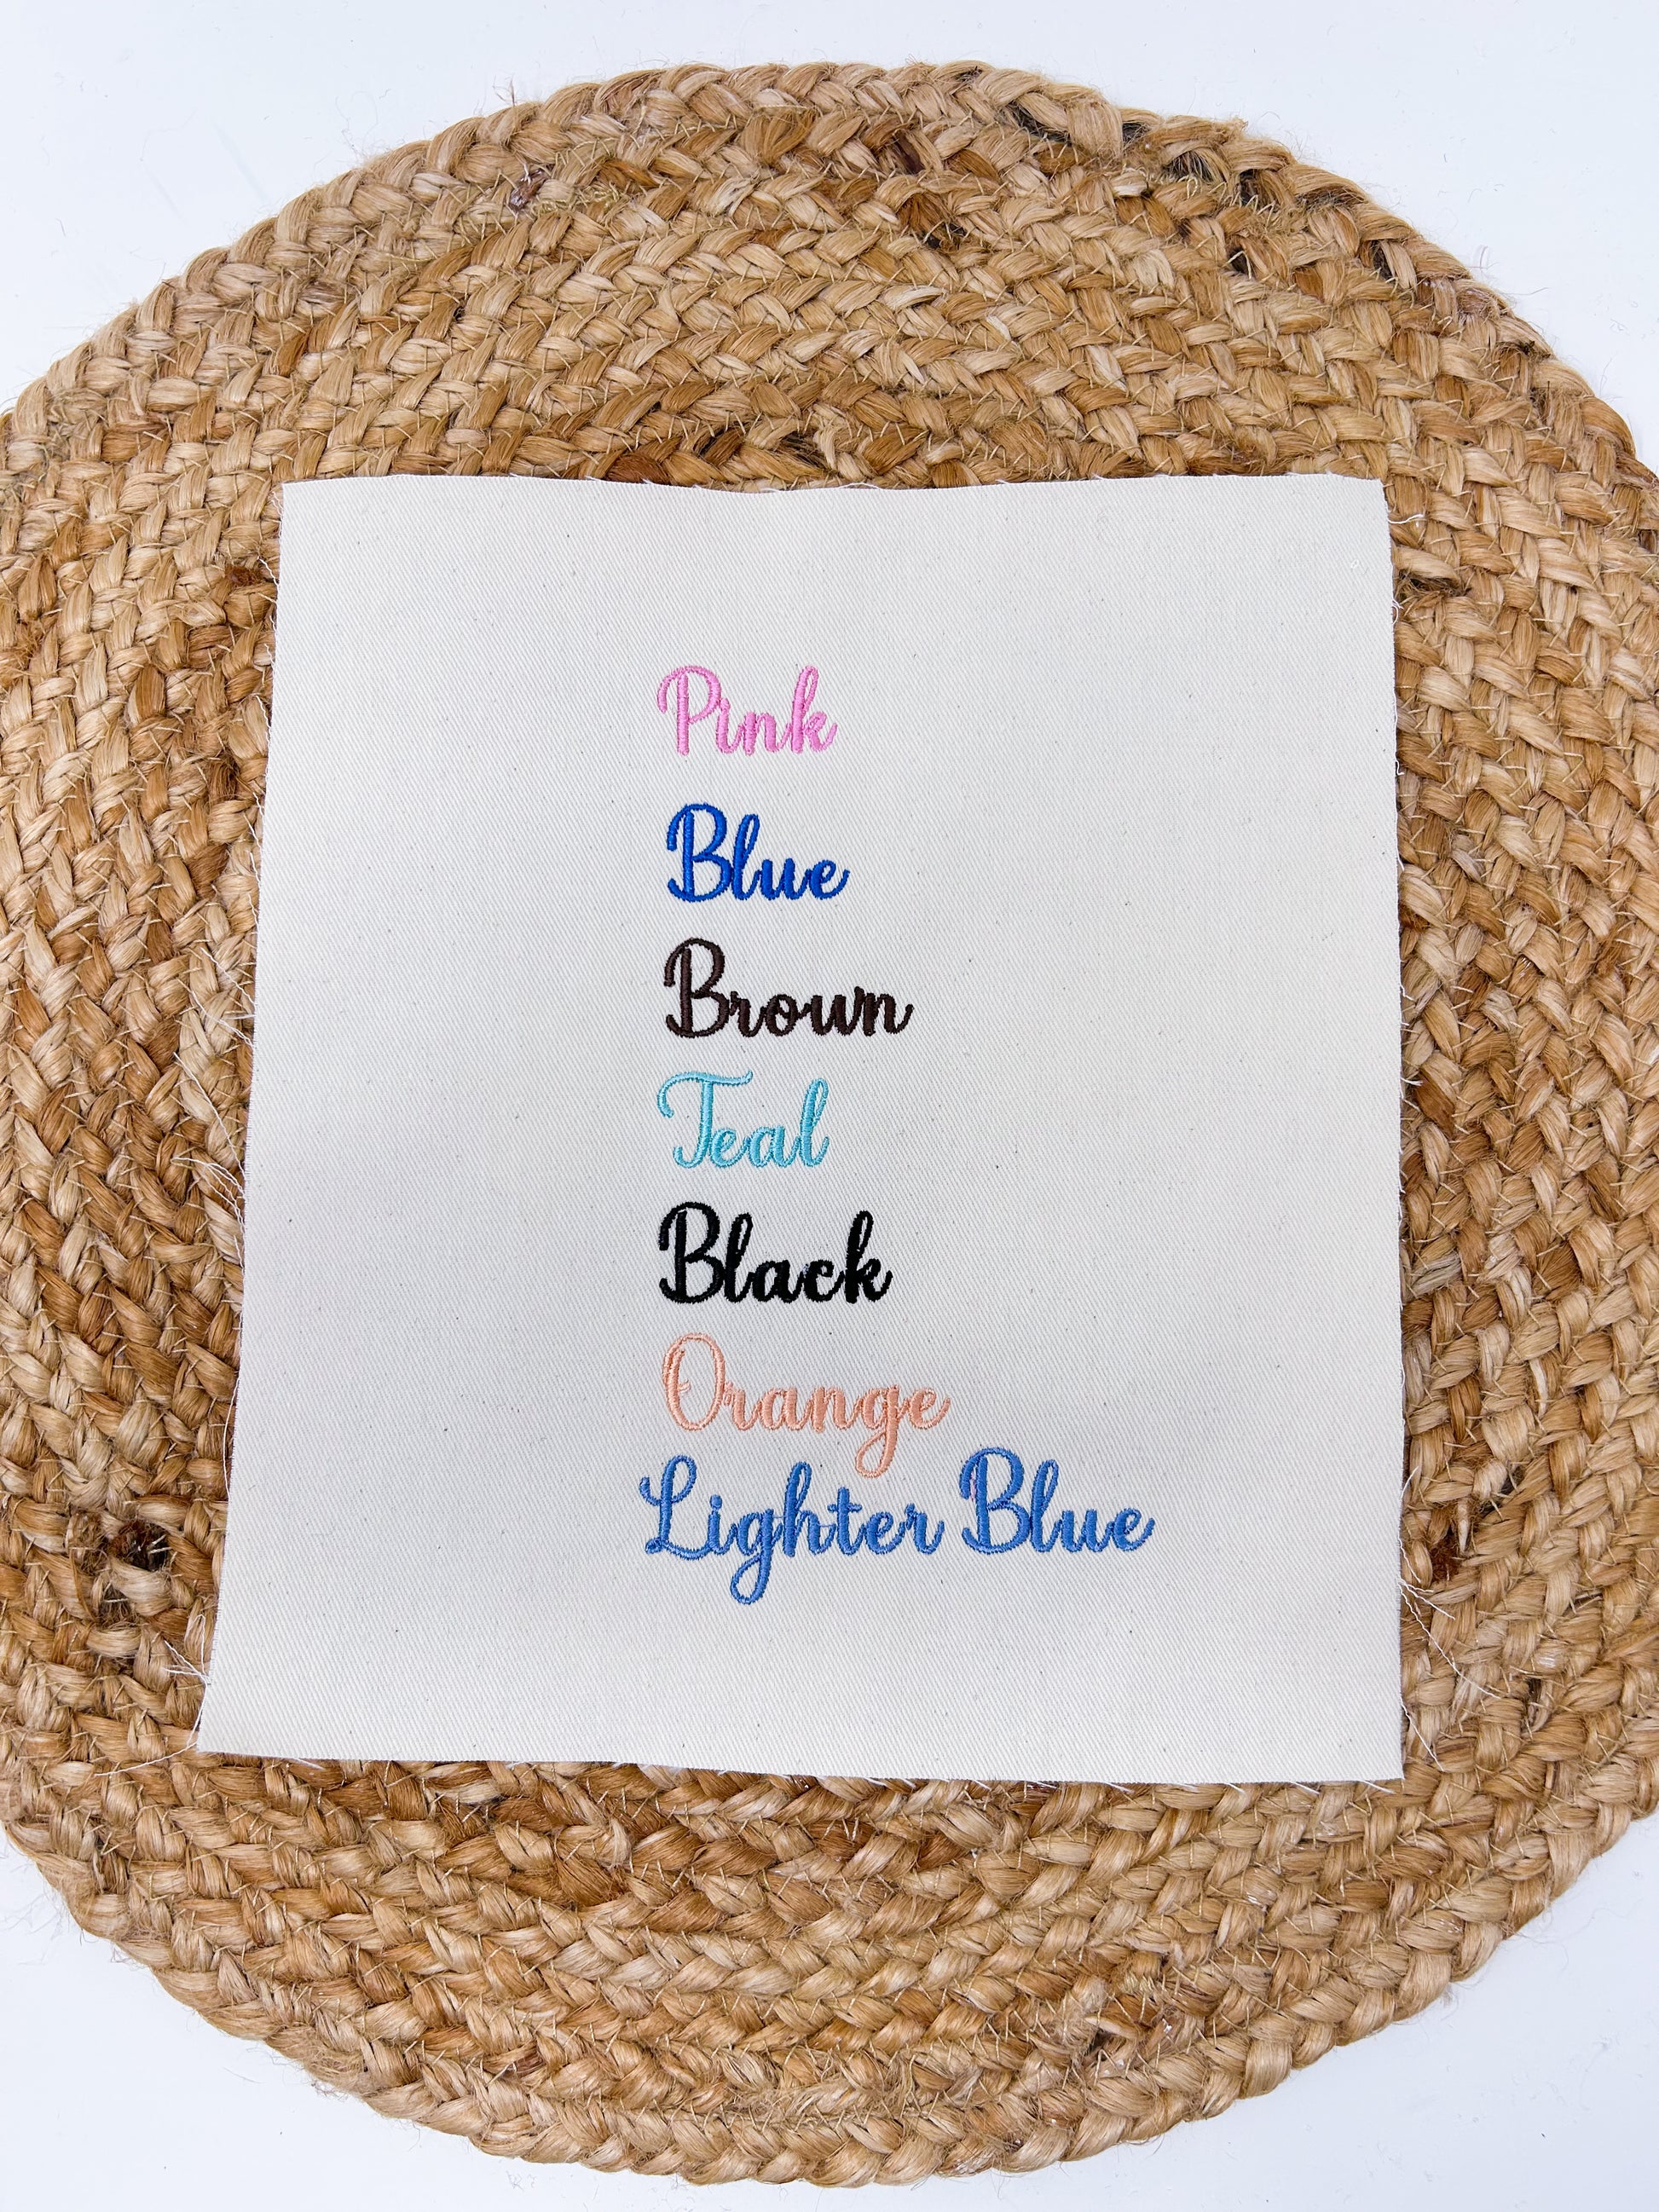 Pink
Blue
Brown
Teal
Black
Orange
Lighter Blue